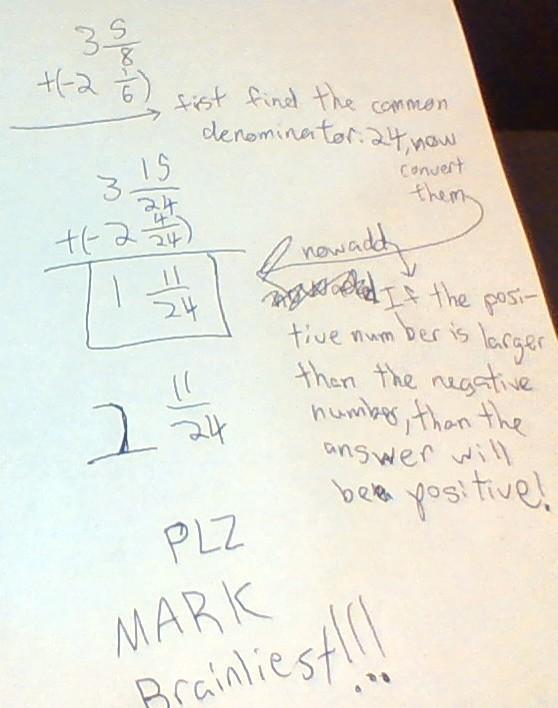 3 5/8
+(-2 1/6)
fist find the common
denominator: 24, now
convert
them
3 15/24
+(-2 4/24)
now add
1 11/24
If the posi-
tive number is larger
than the negative
number, than the
answer will
be positive!
1 11/24
PLZ
MARK
Brainliest!!!...